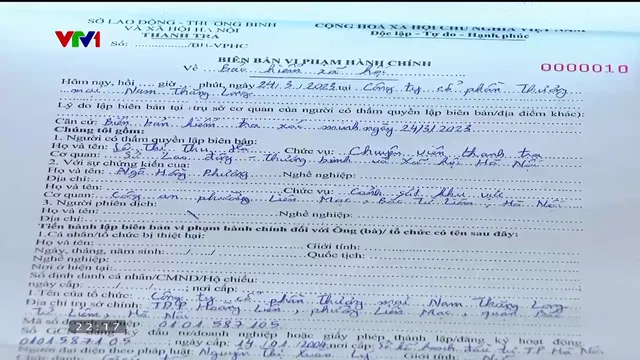 SỞ LAO ĐỘNG - THƯƠNG BINH
VÀ XÃ HỘI HÀ NỘI
THANH TRA
Số: /BB-VPHC
CỘNG HÒA XÃ HỘI CHỦ NGHĨA VIỆT NAM
Độc lập - Tự do - Hạnh phúc
VTV1
BIÊN BẢN VI PHẠM HÀNH CHÍNH
Về Bảo hiểm xã hội
0000010
Hôm nay, hồi giờ phút, ngày 24/3/2023 tại Công ty cổ phần Thương
mại Nam Thăng Long
Lý do lập biên bản tại trụ sở cơ quan của người có thẩm quyền lập biên bản/địa điểm khác):
Căn cứ: Biên bản kiểm tra xác minh ngày 24/3/2023
Chúng tôi gồm:
1. Người có thẩm quyền lập biên bản:
Họ và tên: Lê Thị Thu Chức vụ: Chuyên viên thanh tra
Cơ quan: Sở Lao động - Thương binh và Xã hội Hà Nội
2. Với sự chứng kiến của:
Họ và tên: Ngã Hồng Phương Nghề nghiệp:
Địa chỉ:
Họ và tên: Chức vụ: Cảnh sát khu vực
Cơ quan: Công an phường Liên Mạc, Bắc Từ Liêm, Hà Nội
3. Người phiên dịch:
Họ và tên: Nghề nghiệp:
Địa chỉ:
Tiến hành lập biên bản vi phạm hành chính đối với Ông (bà)/ tổ chức có tên sau đây:
1. Cá nhân/tổ chức bị thiệt hại:
Họ và tên: Giới tính:
Ngày, tháng, năm sinh: Quốc tịch:
Nghề nghiệp:
Nơi ở hiện tại:
Số định danh cá nhân/CMND/Hộ chiếu:
ngày cấp: nơi cấp:
1. Tên của tổ chức: Công ty cổ phần thương mại Nam Thăng Long
Địa chỉ trụ sở chính: TDP Hoàng Liên, phường Liên Mạc, quận Bắc
Từ Liêm, Hà Nội
Mã số 0101587105
Số GCN đăng ký đầu tư/doanh nghiệp hoặc giấy phép thành lập/đăng ký hoạt động
0101587105 ngày cấp: 14/01/2004 nơi cấp: Sở kế hoạch đầu tư TP Hà Nội
Người đại diện theo pháp luật: Nguyễn Thị Xuân Giới tính:
22:17